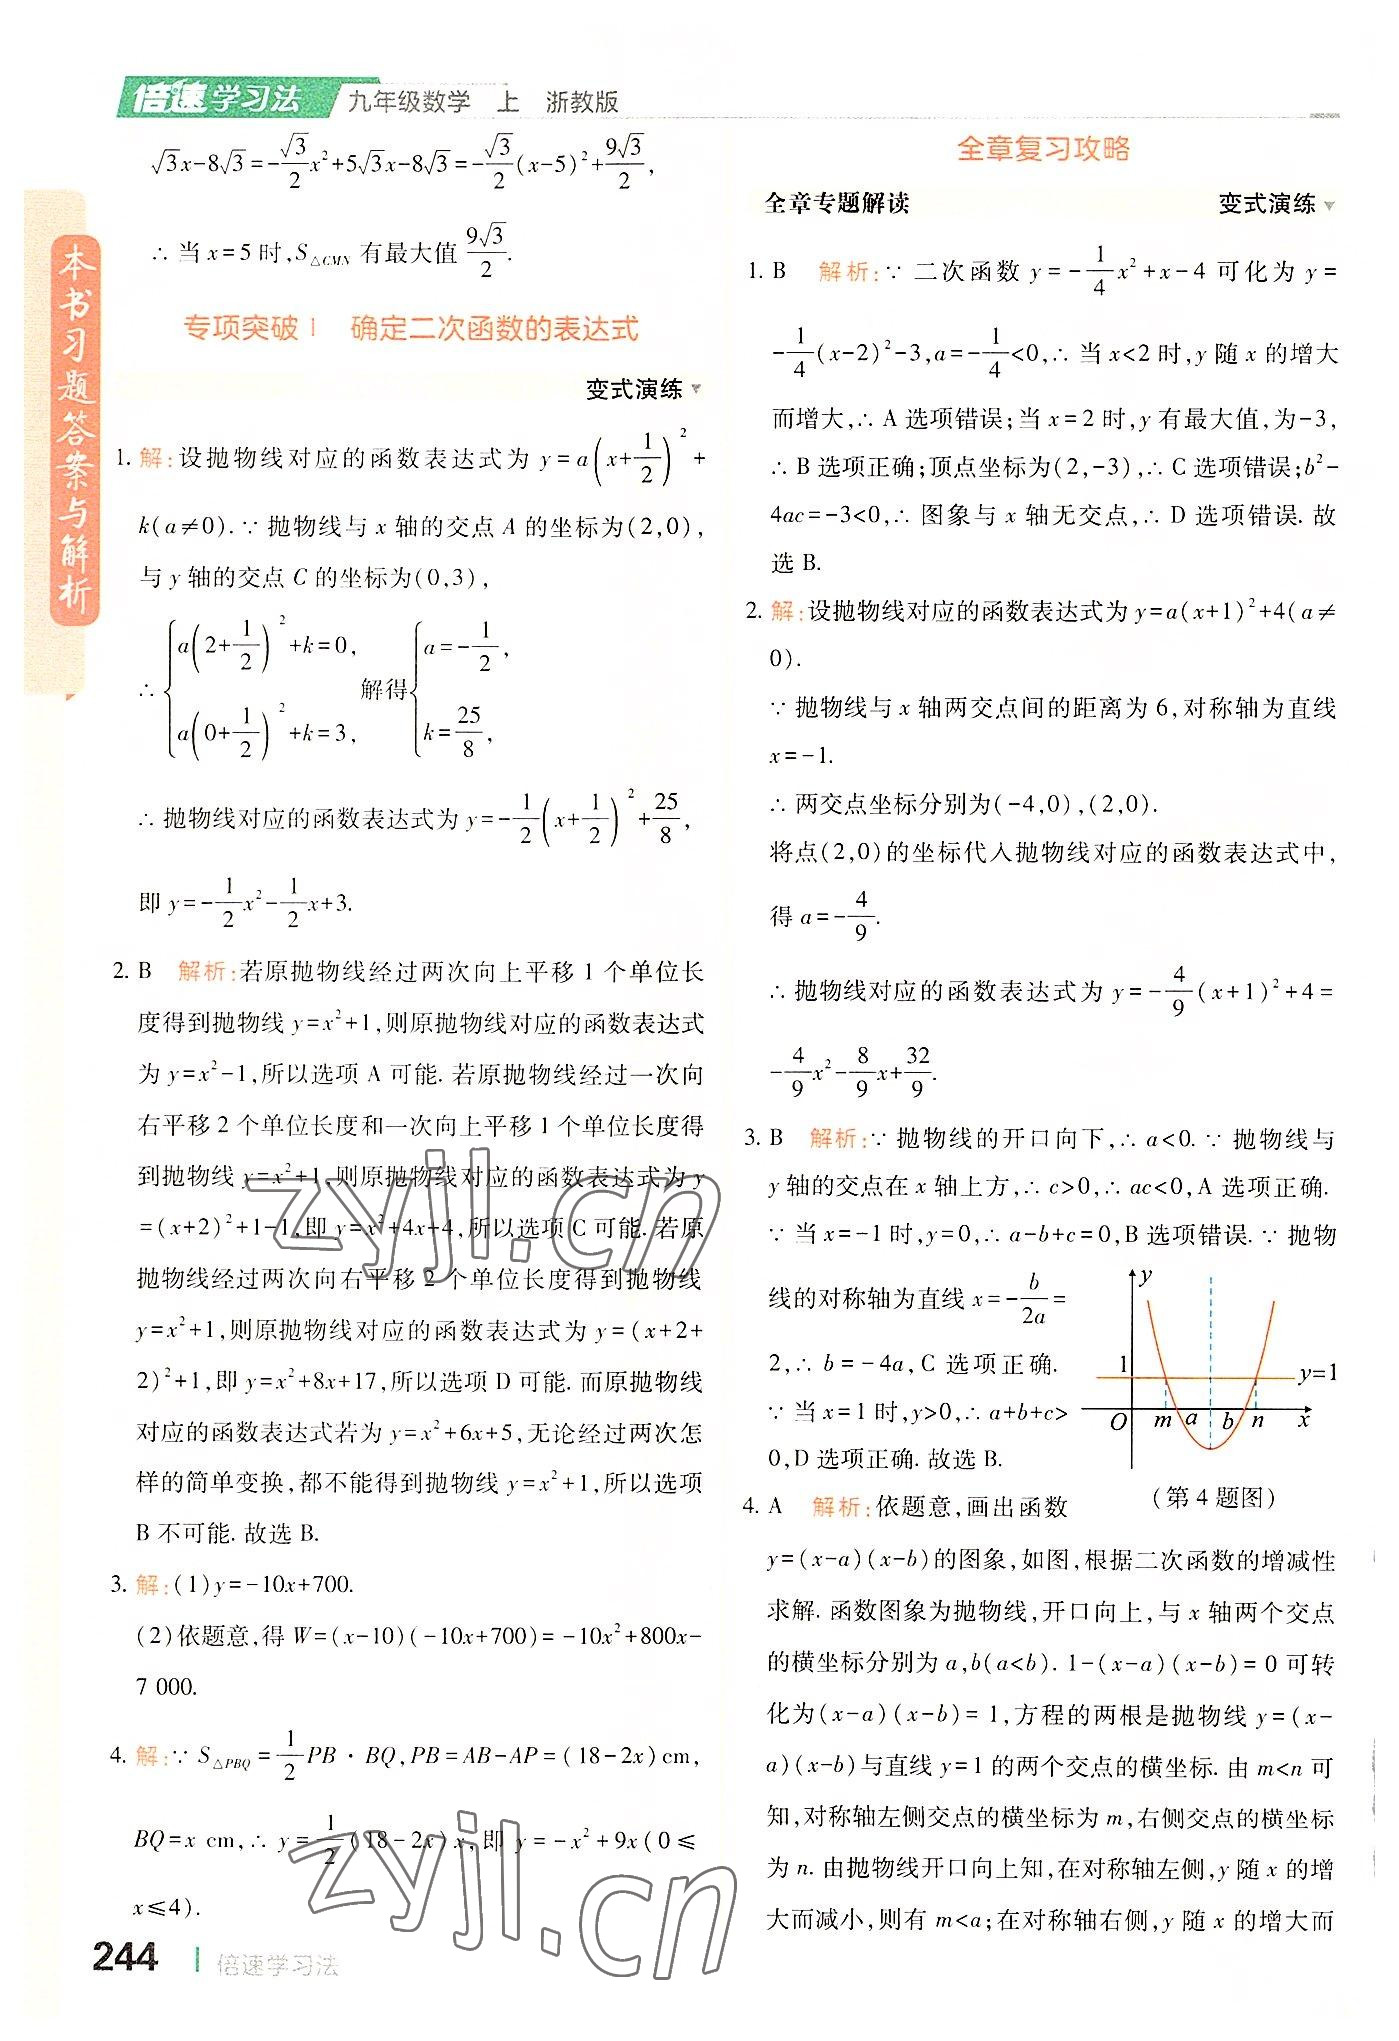 倍速学习法 九年级数学 上 浙教版
√3x-8√3=-√3/2x²+5√3x-8√3=-√3/2(x-5)²+9√3/2,
∴当x=5时,S△CMN有最大值9√3/2.
专项突破1 确定二次函数的表达式
变式演练
1. 解:设抛物线对应的函数表达式为y=a(x+1/2)²+
k(a≠0).∵抛物线与x轴的交点A的坐标为(2,0),
与y轴的交点C的坐标为(0,3),
∴{a(2+1/2)²+k=0, a(0+1/2)²+k=3, 解得{a=-1/2, k=25/8,
∴抛物线对应的函数表达式为y=-1/2(x+1/2)²+25/8,
即y=-1/2x²-1/2x+3.
2. B 解析:若原抛物线经过两次向上平移1个单位长
度得到抛物线y=x²+1,则原抛物线对应的函数表达式
为y=x²-1,所以选项A可能.若原抛物线经过一次向
右平移2个单位长度和一次向上平移1个单位长度得
到抛物线y=x²+1,则原抛物线对应的函数表达式为y
=(x+2)²+1-1,即y=x²+4x+4,所以选项C可能.若原
抛物线经过两次向右平移2个单位长度得到抛物线
y=x²+1,则原抛物线对应的函数表达式为y=(x+2+
2)²+1,即y=x²+8x+17,所以选项D可能.而原抛物线
对应的函数表达式若为y=x²+6x+5,无论经过两次怎
样的简单变换,都不能得到抛物线y=x²+1,所以选项
B不可能.故选B.
3. 解:(1)y=-10x+700.
(2)依题意,得W=(x-10)(-10x+700)=-10x²+800x-
7 000.
4. 解:∵S△PBQ=1/2PB·BQ,PB=AB-AP=(18-2x)cm,
BQ=x cm,∴y=1/2(18-2x)x,即y=-x²+9x(0≤
x≤4).
全章复习攻略
全章专题解读 变式演练
1. B 解析:∵二次函数y=-1/4x²+x-4可化为y=
-1/4(x-2)²-3,a=-1/4<0,∴当x<2时,y随x的增大
而增大,∴A选项错误;当x=2时,y有最大值,为-3,
∴B选项正确;顶点坐标为(2,-3),∴C选项错误;b²-
4ac=-3<0,∴图象与x轴无交点,∴D选项错误.故
选B.
2. 解:设抛物线对应的函数表达式为y=a(x+1)²+4(a≠
0).
∵抛物线与x轴两交点间的距离为6,对称轴为直线
x=-1.
∴两交点坐标分别为(-4,0),(2,0).
将点(2,0)的坐标代入抛物线对应的函数表达式中,
得a=-4/9.
∴抛物线对应的函数表达式为y=-4/9(x+1)²+4=
-4/9x²-8/9x+32/9.
3. B 解析:∵抛物线的开口向下,∴a<0.∵抛物线与
y轴的交点在x轴上方,∴c>0,∴ac<0,A选项正确.
∵当x=-1时,y=0,∴a-b+c=0,B选项错误.∵抛物
线的对称轴为直线x=-b/2a=
2,∴b=-4a,C选项正确.
∵当x=1时,y>0,∴a+b+c>
0,D选项正确.故选B.
y
1 y=1
O m a b n x
(第4题图)
4. A 解析:依题意,画出函数
y=(x-a)(x-b)的图象,如图,根据二次函数的增减性
求解.函数图象为抛物线,开口向上,与x轴两个交点
的横坐标分别为a,b(a<b).1-(x-a)(x-b)=0可转
化为(x-a)(x-b)=1,方程的两根是抛物线y=(x-
a)(x-b)与直线y=1的两个交点的横坐标.由m<n可
知,对称轴左侧交点的横坐标为m,右侧交点的横坐标
为n.由抛物线开口向上知,在对称轴左侧,y随x的增
大而减小,则有m<a;在对称轴右侧,y随x的增大而
本书习题答案与解析
zyjl.cn
zyjl.cn
244 倍速学习法